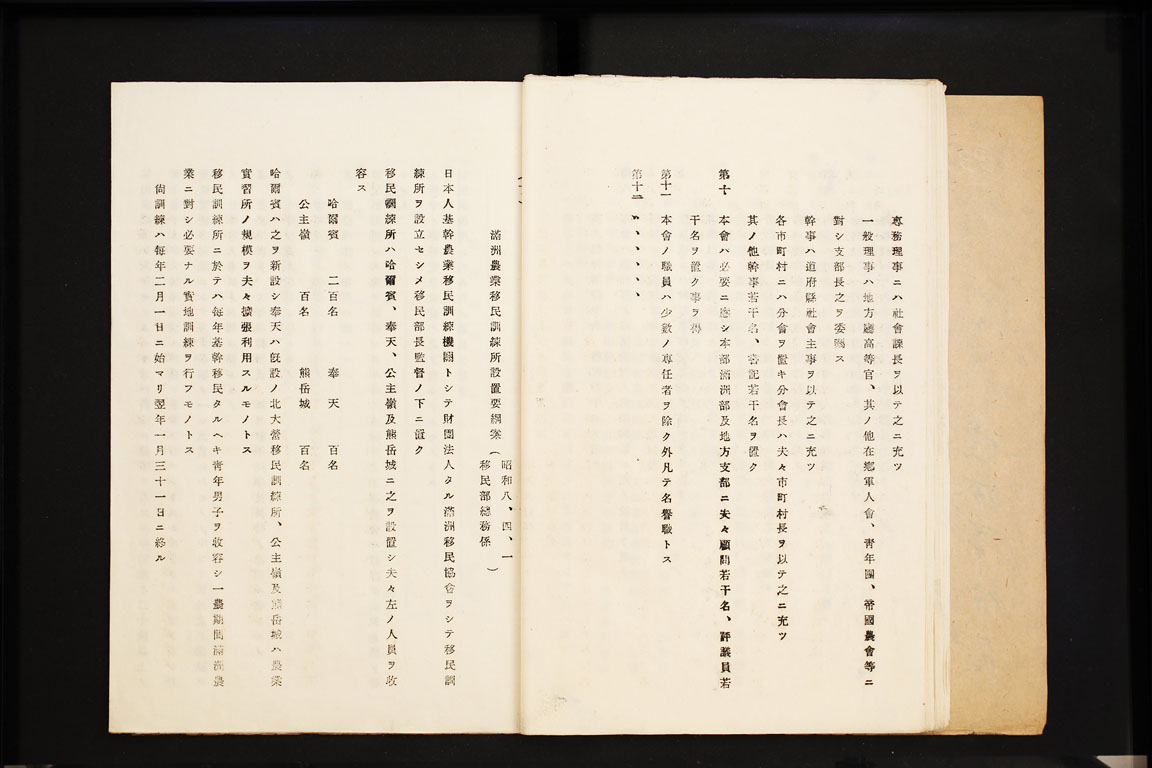 専務理事ニハ社會課長ヲ以テ之ニ充ツ
一般理事ハ地方廳高等官、其ノ他在郷軍人會、靑年團、帝國農會等ニ
對シ支部長之ヲ委囑ス
幹事ハ道府縣社會主事ヲ以テ之ニ充ツ
各市町村ニハ分會ヲ置キ分會長ハ夫々市町村長ヲ以テ之ニ充ツ
其ノ他幹事若干名、書記若干名ヲ置ク
第十 本會ハ必要ニ應シ本部滿洲部及地方支部ニ夫々顧問若干名、評議員若
干名ヲ置ク事ヲ得
第十一 本會ノ職員ハ少數ノ專任者ヲ除ク外凡テ名譽職トス
第十二 、、、、、、
滿洲農業移民訓練所設置要綱案(昭和八、四、一
移民部總務係)
日本人基幹農業移民訓練機關トシテ財團法人タル滿洲移民協會ヲシテ移民訓
練所ヲ設立セシメ移民部長監督ノ下ニ置ク
移民訓練所ハ哈爾賓、奉天、公主嶺及熊岳城ニ之ヲ設置シ夫々左ノ人員ヲ收
容ス
哈爾賓 二百名 奉天 百名
公主嶺 百名 熊岳城 百名
哈爾賓ハ之ヲ新設シ奉天ハ旣設ノ北大營移民訓練所、公主嶺及熊岳城ハ農業
實習所ノ規模ヲ夫々擴張利用スルモノトス
移民訓練所ニ於テハ每年基幹移民タルヘキ靑年男子ヲ收容シ一農期間滿洲農
業ニ對シ必要ナル實地訓練ヲ行フモノトス
尙訓練ハ每年二月一日ニ始マリ翌年一月三十一日ニ終ル